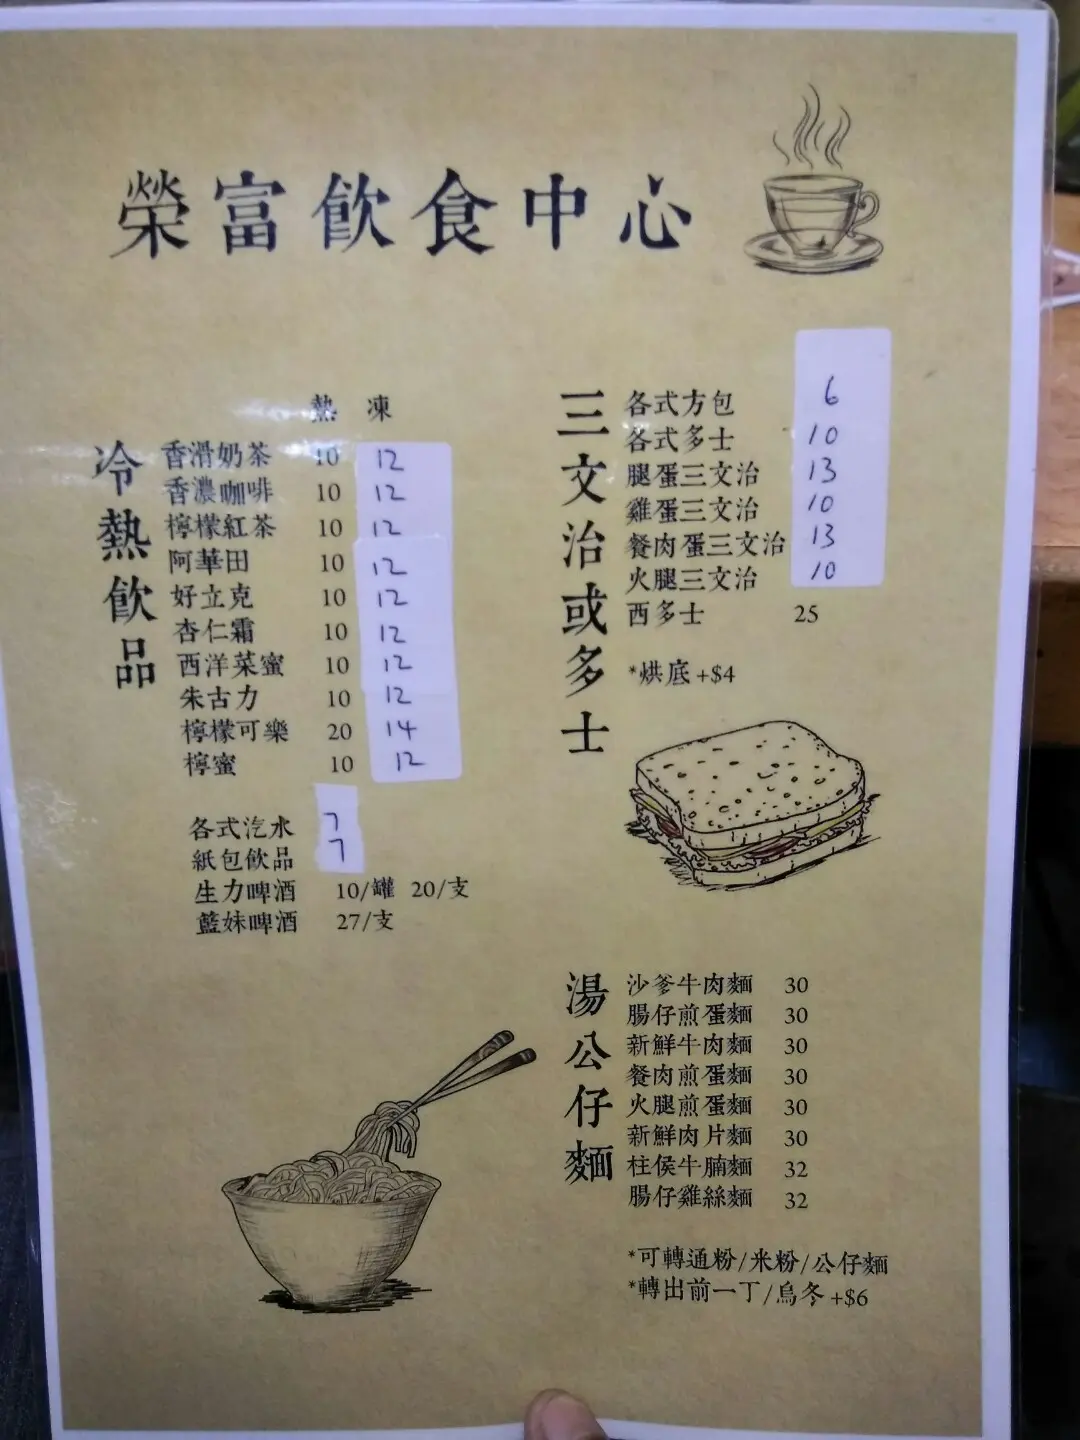 榮富飲食中心
冷熱飲品
熱 凍
香滑奶茶 10 12
香濃咖啡 10 12
檸檬紅茶 10 12
阿華田 10 12
好立克 10 12
杏仁霜 10 12
西洋菜蜜 10 12
朱古力 10 12
檸檬可樂 20 14
檸蜜 10 12
各式汽水 7
紙包飲品 7
生力啤酒 10/罐 20/支
藍妹啤酒 27/支
三文治或多士
各式方包 6
各式多士 10
腿蛋三文治 13
雞蛋三文治 10
餐肉蛋三文治 13
火腿三文治 10
西多士 25
*烘底 +$4
湯公仔麵
沙爹牛肉麵 30
腸仔煎蛋麵 30
新鮮牛肉麵 30
餐肉煎蛋麵 30
火腿煎蛋麵 30
新鮮肉片麵 30
柱侯牛腩麵 32
腸仔雞絲麵 32
*可轉通粉/米粉/公仔麵
*轉出前一丁/烏冬 +$6